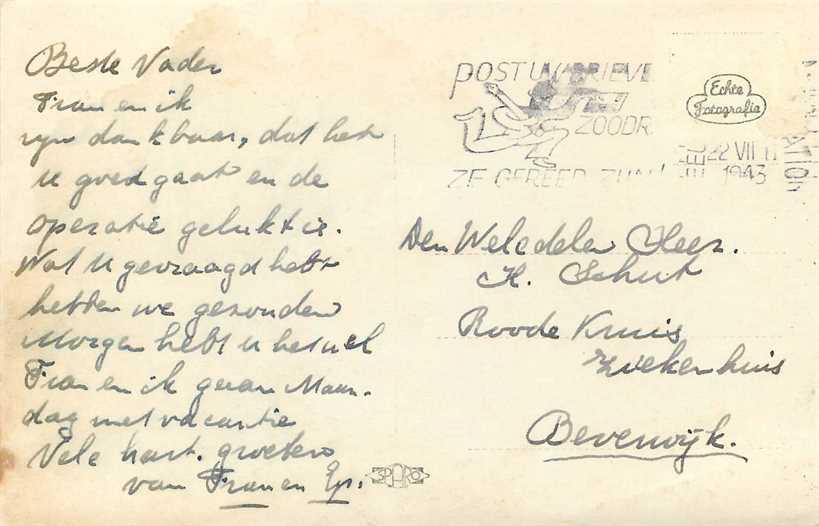 Beste Vader
Fran en ik
zyn dankbaar, dat het
u goed gaat en de
operatie gelukt is.
Wat U gevraagd hebt
hebben we gezonden
Morgen hebt u het wel
Fran en ik gaan Maan-
dag met vacantie
Vele hart. groeten
van Fran en Ep.
POST UW BRIEVE
ZOODR
ZE GEREED ZIJN
22 VII
1943
Echte
Fotografie
Den Weledelen Heer.
K. Schut
Roode Kruis
Ziekenhuis
Beverwijk.
SPARO